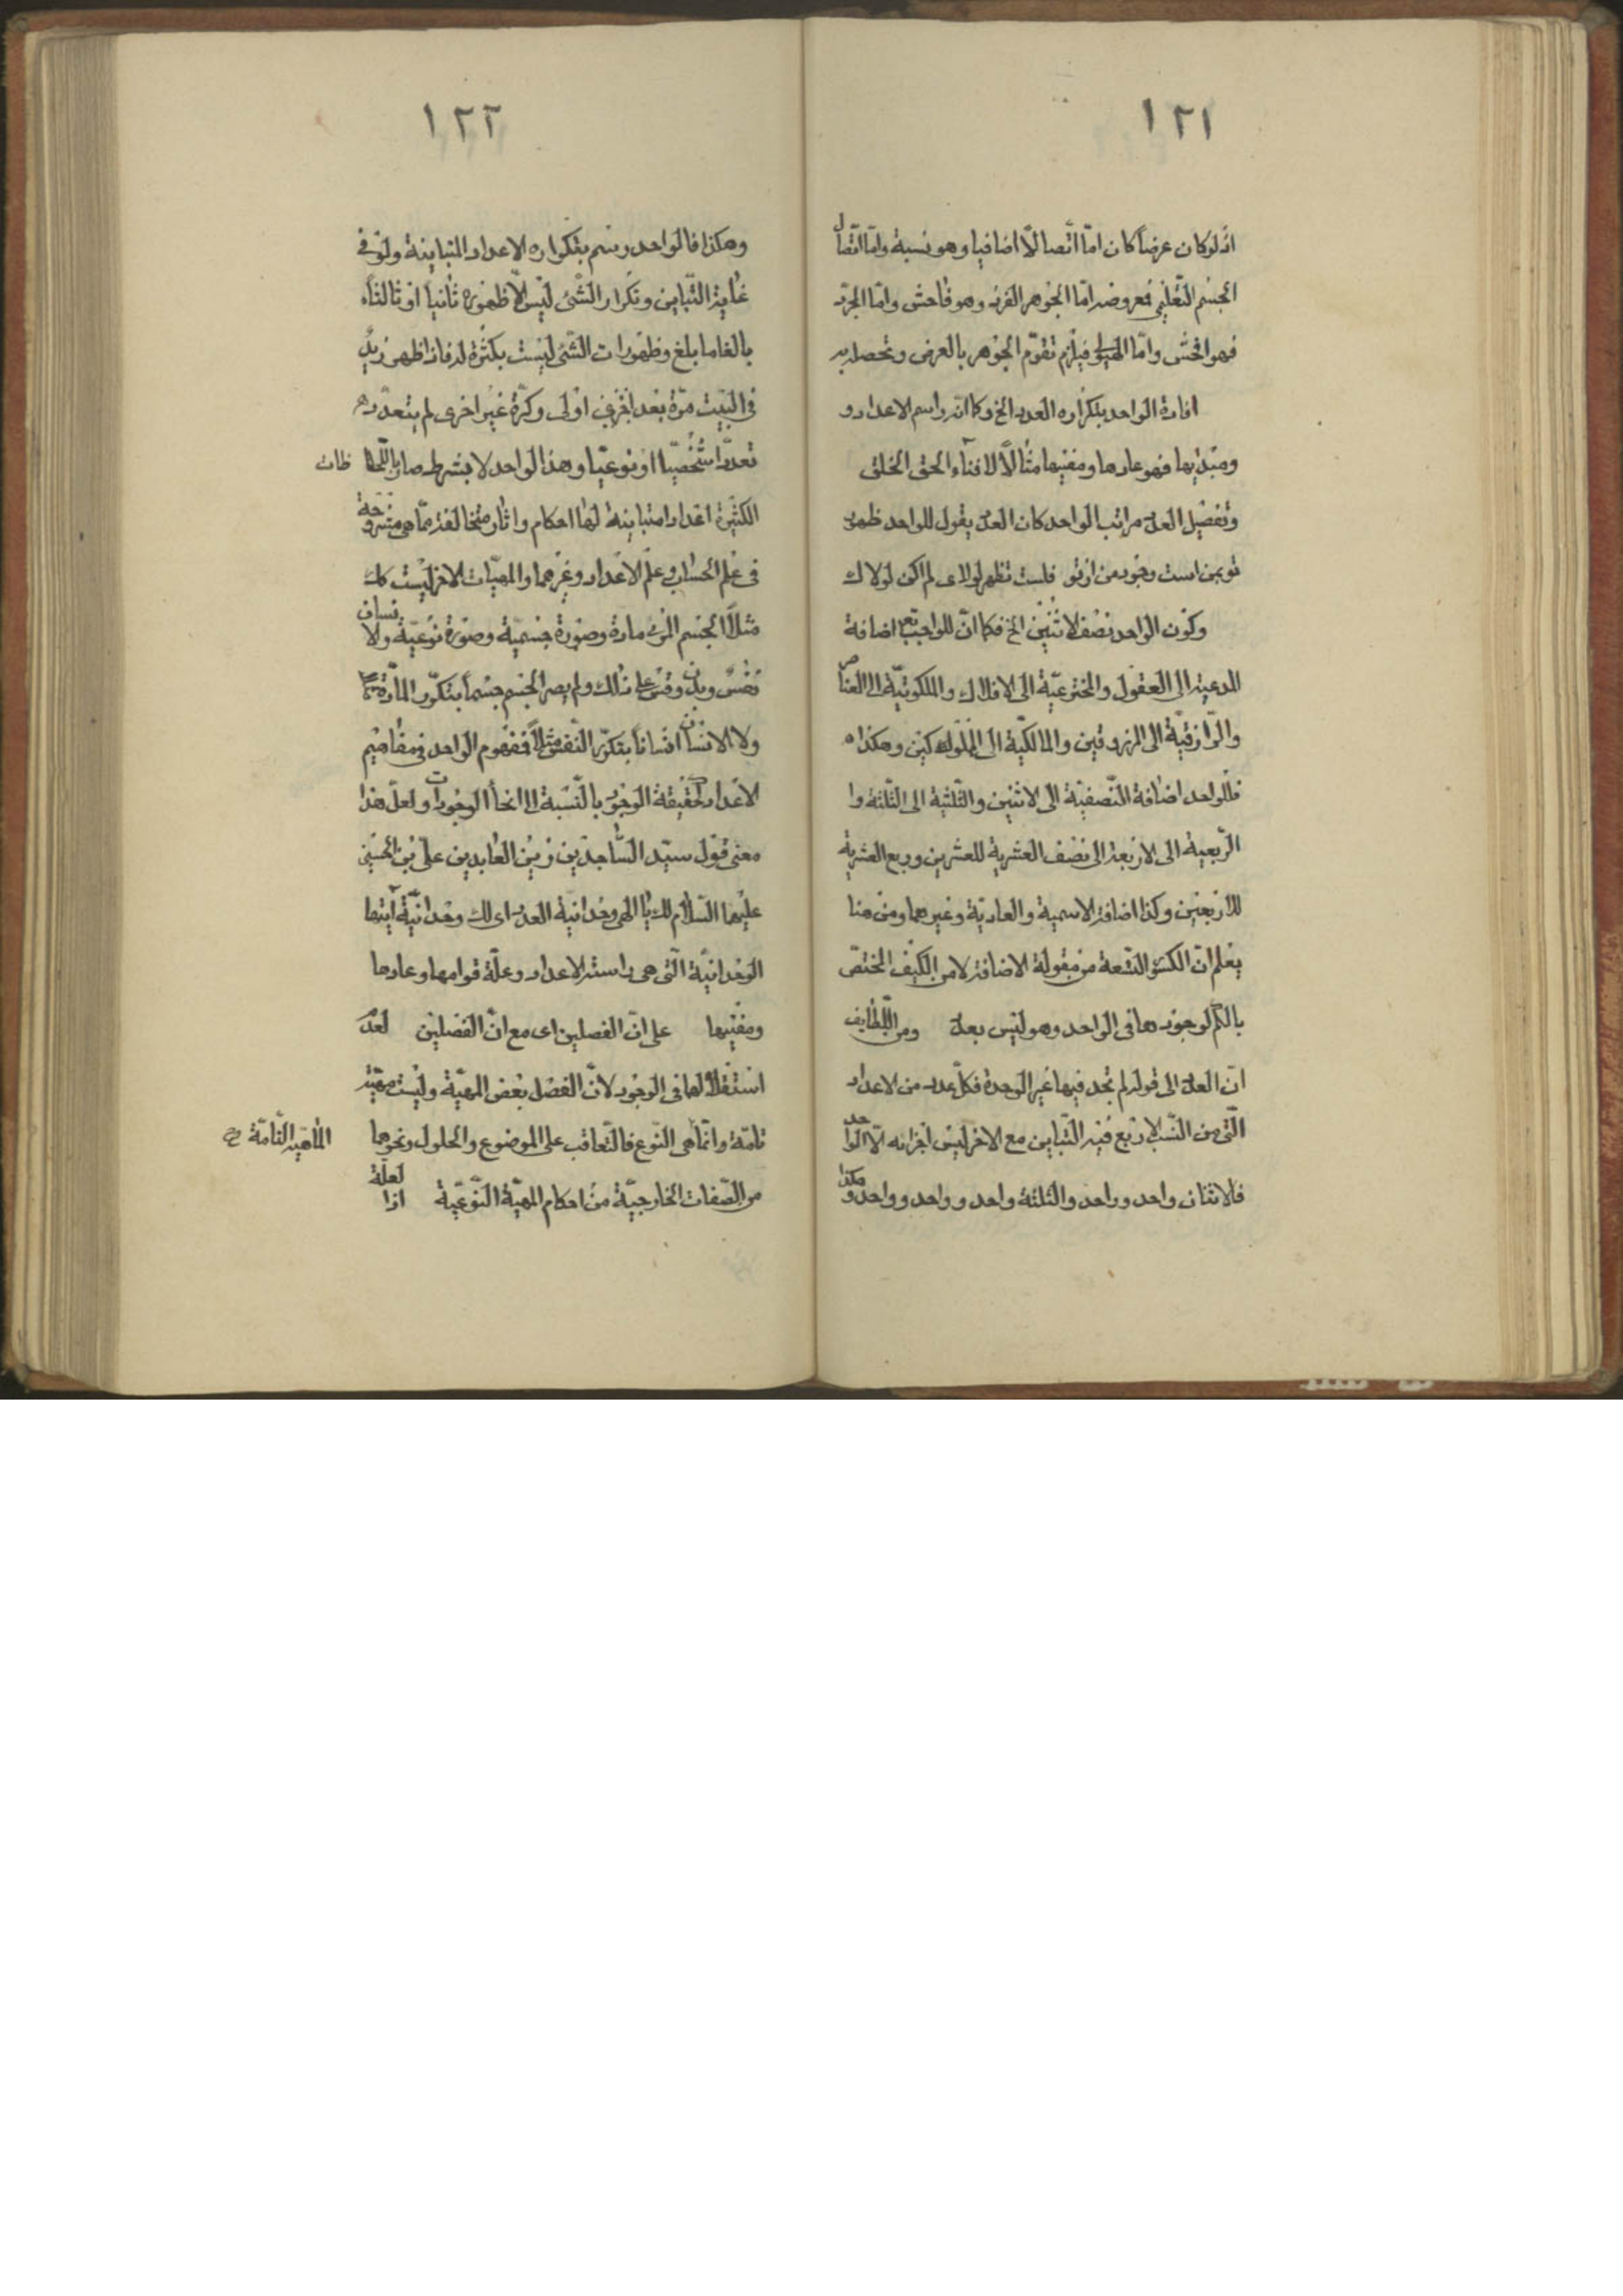 ١٢١
اذ لو كان عرضاً كان امّا اتّصالاً اضافيا وهو نسبة وامّا اتّصال
الجسم التّعليمي فمعروضه امّا الجوهر الفرد وهو فاحش وامّا المجرّد
فهو افحش وامّا الهيولى فيلزم تقوّم الجوهر بالعرض وتحصله به
افادة الواحد بتكراره العدد الخ وكما انّه راسم الاعداد و
ومبديها فهو عادها ومفنيها مثالاً لافناء الحق الخلق
وتفصيل العدد مراتب الواحد كان العدد يقول للواحد ظهور
تو بمن است وجود من از تو فلست تظهر لولاى لم اكن لولاك
وكون الواحد نصف الاثنين الخ فكما انّ للواجب تع اضافة
المبدعية الى العقول والمخترعيّة الى الافلاك والملكوتيّة الى العناصر
والرّازقيّة الى المرزوقين والمالكيّة الى المملوكين وهكذا ه
فللواحد اضافة النّصفيّة الى الاثنين والثّلثية الى الثّلثة وا
الرّبعية الى الاربعة الى نصف العشرية للعشرين وربع العشرية
للاربعين وكذا اضافة الاسمية والعادية وغيرهما ومن هنا
يعلم انّ الكسور التّسعة من مقولة الاضافة لا من الكيف المختصّ
بالكمّ لوجودها فى الواحد وهو ليس بعدد ومن اللّطايف
انّ العدد الى قوله لم تجد فيها غير الوحدة فكلّ عدد من الاعداد
الّتى من النّسب الاربع فيه التّباين مع الاخر ليس اجزائه الّا الواحد
فالاثنان واحد وواحد والثلثة واحد وواحد وواحد وهكذا
١٢٢
وهكذا فالواحد رسم بتكراره الاعداد المتباينة ولو فى
غاية التّباين وتكرار الشّئ ليس الّا ظهوره ثانياً او ثالثاً ه
بالغا ما بلغ وظهورات الشّئ ليست بكثرة له فاذا ظهر زيد
فى البيت مرّة بعد اخرى اولى وكرّة غير اخرى لم يتعدّد ه
تعدداً شخصيّا او نوعيّا وهذا الواحد لا بشرط صار باللّحاظات
الكثيرة اعدادا متباينة لها احكام واثار متخالفة ممّا هى مشروحة
فى علم الحساب وعلم الاعداد وغيرهما والمهيّات الاخر ليست كك
مثلاً الجسم المركب مادة وصورة جسمية وصورة نوعيّة والانسان
نفس وبدن وقس على ذلك ولم يصر الجسم جسماً بتكرّر المادّة
ولا الانسان انساناً بتكرّر النّفس مثلاً فمفهوم الواحد فى مفاهيم
الاعداد كحقيقة الوجود بالنّسبة الى انحاء الوجودات ولعلّ هذا
معنى قول سيّد السّاجدين زين العابدين علىّ بن الحسين
عليهما السّلام لك يا الهى وحدانيّة العدد اى لك وحدانيّة آيتها
الوحدانيّة الّتى هى راسمة الاعداد وعلّة قوامها وعادها
ومفنيها على انّ الفصلين اى مع انّ الفصلين لعدم
استقلالهما فى الوجود لانّ الفصل بعض المهيّة وليست مهيّة
تامّة وانّما هى النّوع فالتّعاقب على الموضوع والحلول ونحوهما الماهيّة التّامّة خ
من الصّفات الخارجيّة من احكام المهيّة النّوعيّة لعلّة اذا